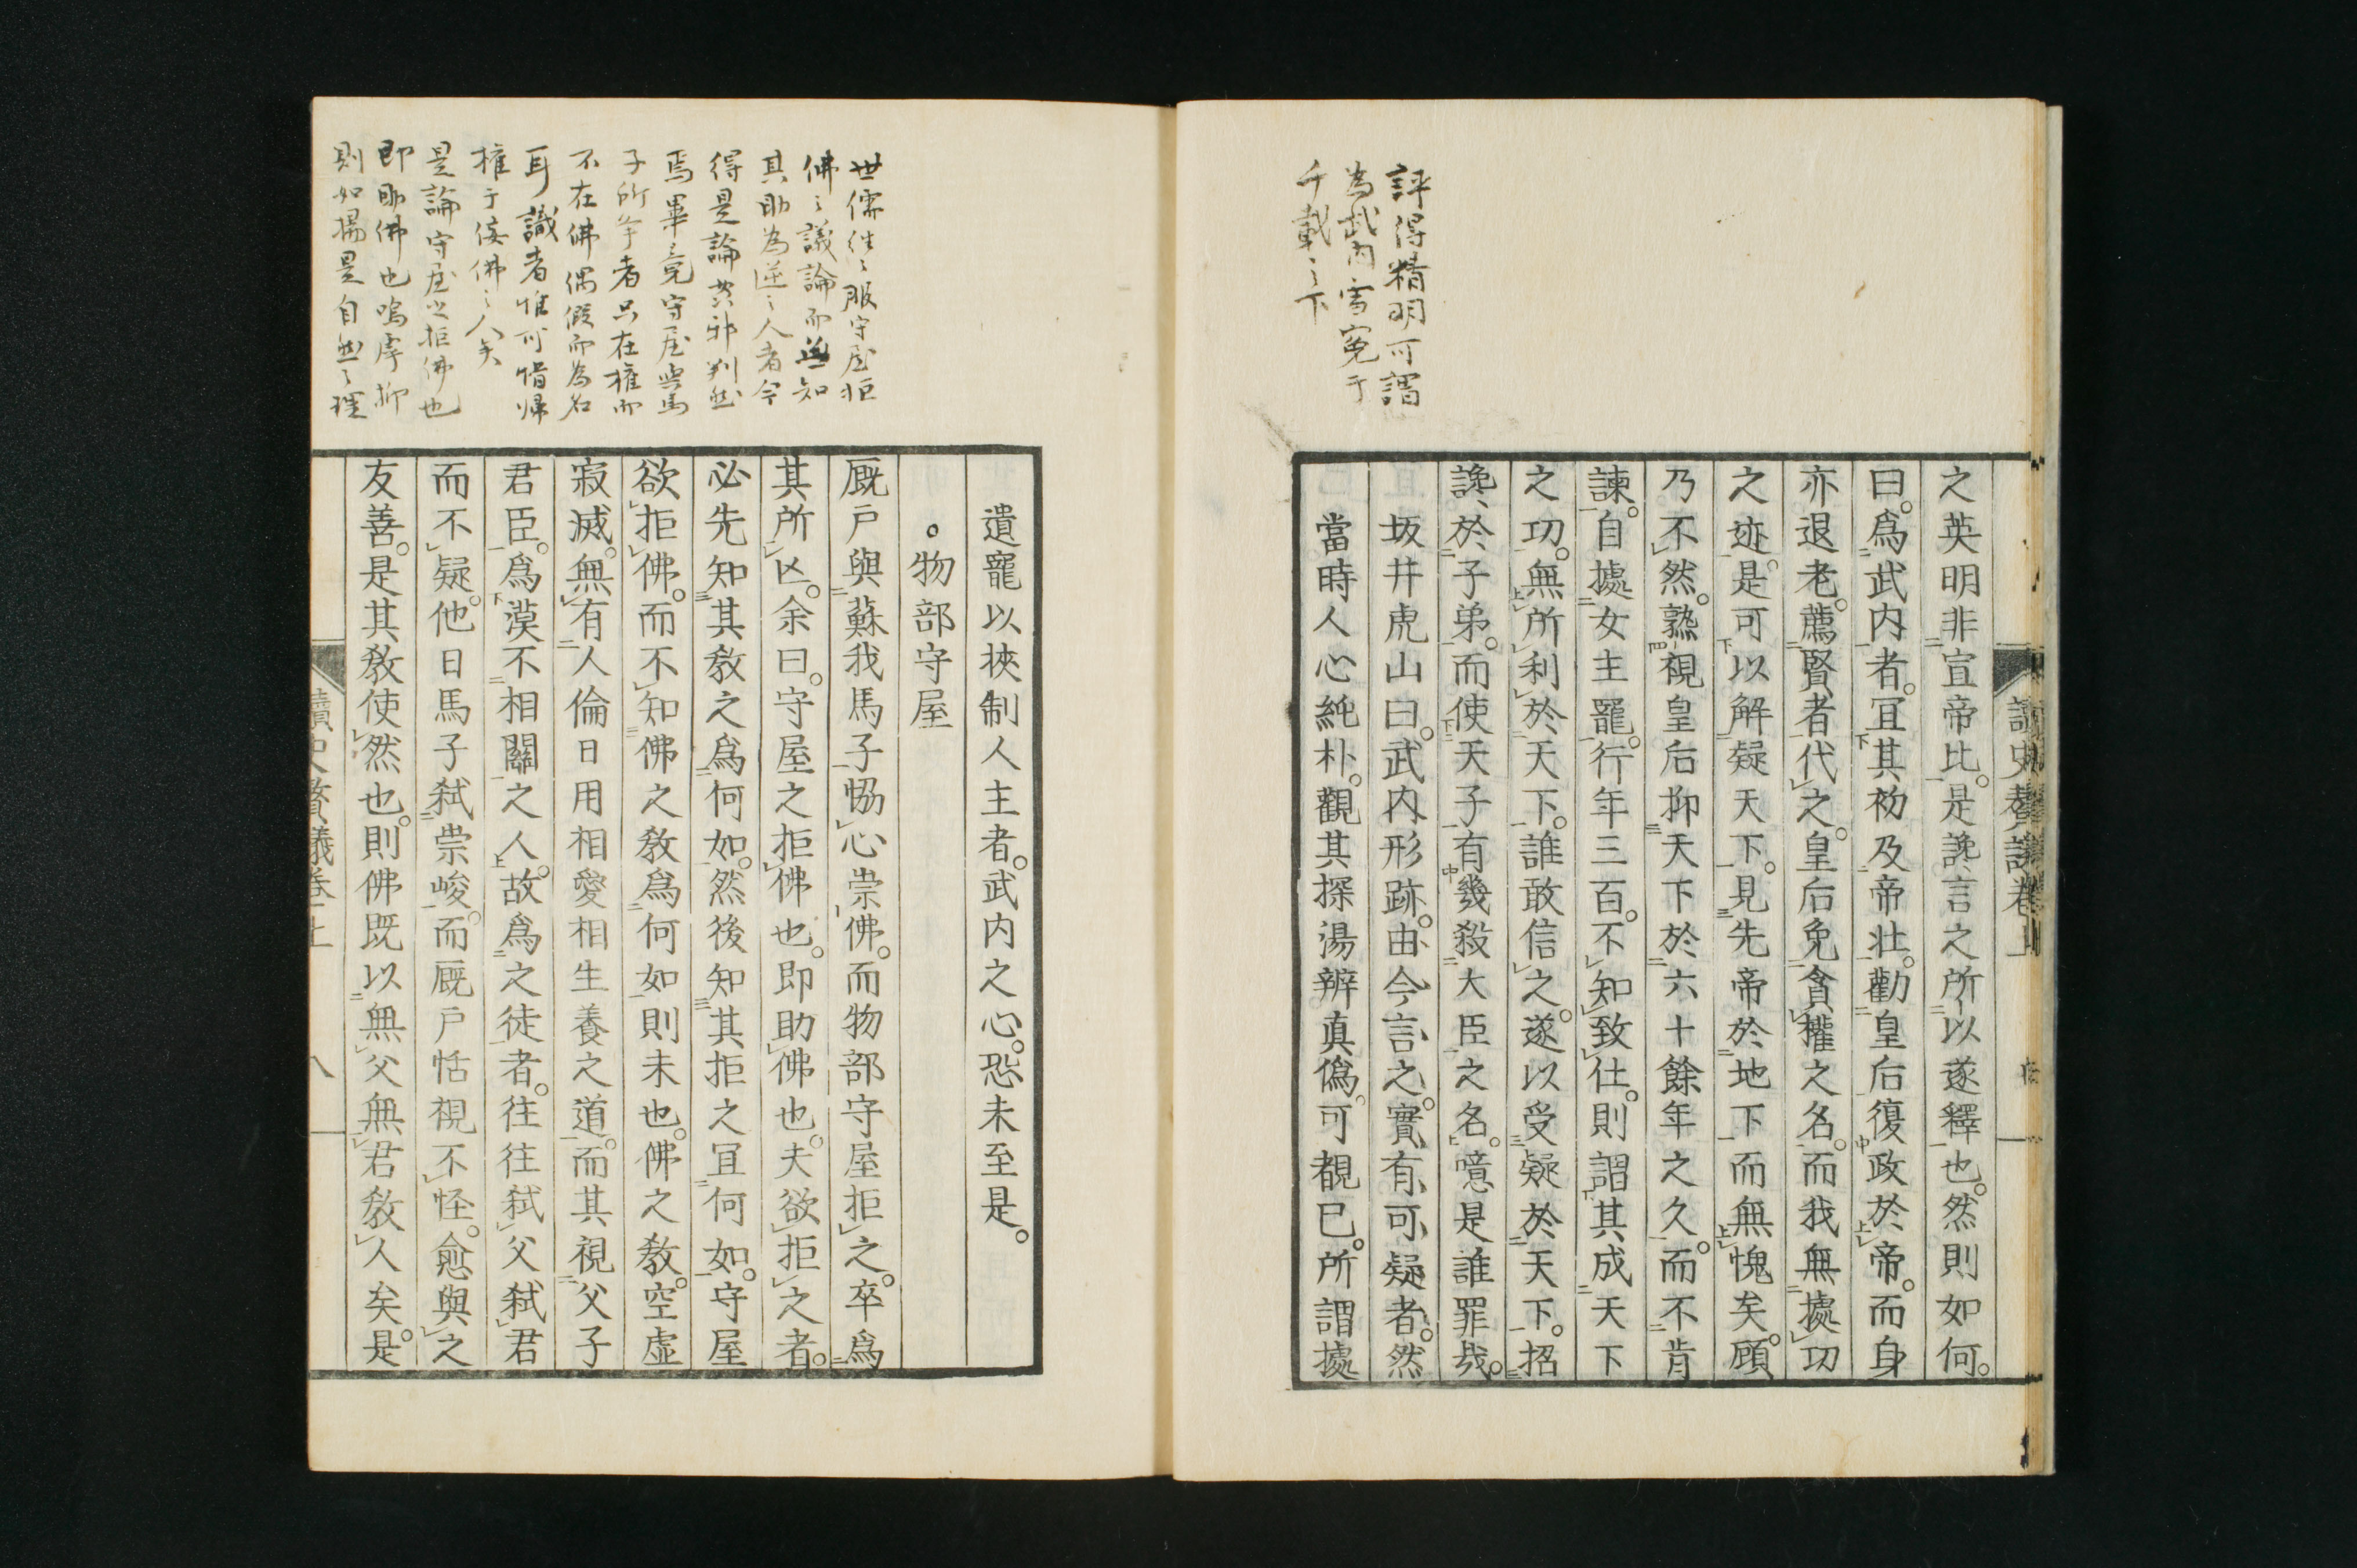 評得精明可謂
為武内雪寃于
千載之下
之英明非宣帝比。是讒言之所以遂釋也。然則如何。
曰。爲武内者。冝其初及帝壮。勸皇后復政於帝。而身
亦退老。薦賢者代之。皇后免貪權之名。而我無據功
之迹。是可以解疑天下。見先帝於地下而無愧矣。顧
乃不然。熟視皇后抑天下於六十餘年之久。而不肯
諫。自據女主寵。行年三百。不知致仕。則謂其成天下
之功。無所利於天下。誰敢信之。遂以受疑於天下。招
讒於子弟。而使天子有幾殺大臣之名。噫是誰罪哉。
坂井虎山曰。武内形跡。由今言之。實有可疑者。然
當時人心純朴。觀其探湯辨眞僞。可覩已。所謂據
世儒往々服守屋拒
佛之議論而無知
其助為逆之人者今
得是論黄邪判然
焉畢竟守屋與馬
子所争者只在権而
不在佛偶假而為名
耳識者惟可惜帰
権于佞佛之人矣
是論守屋之拒佛也
即助佛也嗚呼抑
則如揚是自然之理
遺寵以挾制人主者。武内之心。恐未至是。
。物部守屋
厩戸與蘇我馬子恊心崇佛。而物部守屋拒之。卒爲
其所凶。余曰。守屋之拒佛也。即助佛也。夫欲拒之者。
必先知其教之爲何如。然後知其拒之冝何如。守屋
欲拒佛。而不知佛之教爲何如則未也。佛之教。空虚
寂滅。無有人倫日用相愛相生養之道。而其視父子
君臣。爲漠不相關之人。故爲之徒者。往往弑父弑君
而不疑。他日馬子弑崇峻。而厩戸恬視不怪。愈與之
友善。是其教使然也。則佛既以無父無君教人矣。是
讀史贅議卷上
八